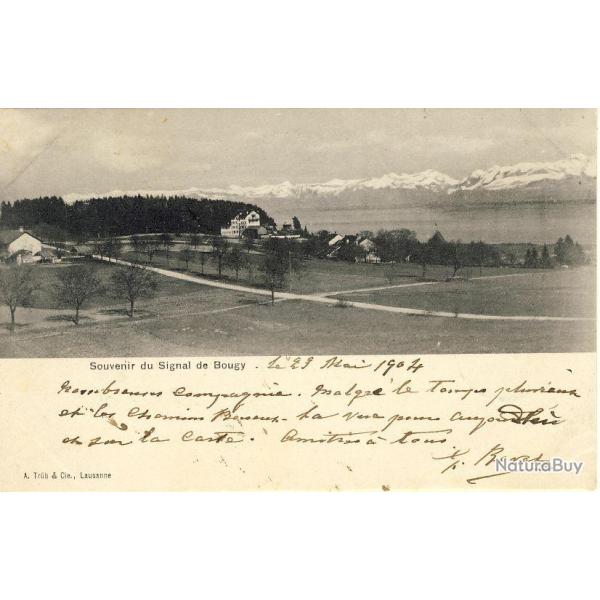 Souvenir du Signal de Bougy. le 29 Mai 1904
Nombreuse compagnie. Malgré le temps pluvieux
et les chemins Boueux. La vue pour aujourd'hui
est sur la carte. Amitiés à tous
A. Trüb & Cie., Lausanne
NaturaBuy